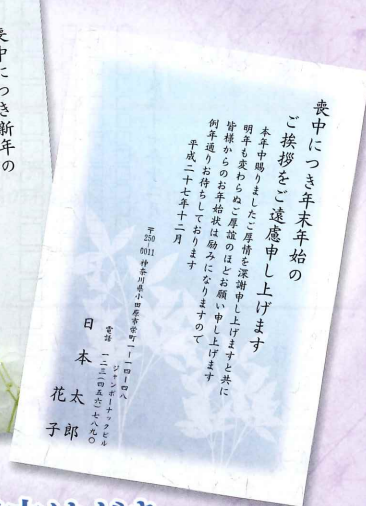 喪中につき新年の
喪中につき年末年始の
ご挨拶をご遠慮申し上げます
本年中賜りましたご厚情を深謝申し上げますと共に
明年も変わらぬご厚誼のほどお願い申し上げます
皆様からのお年始状は励みになりますので
例年通りお待ちしております
平成二十七年十二月
〒250-0011 神奈川県小田原市栄町一-一四-四八
ジャンボーナックビル
電話 一二三(四五六)七八九〇
日本 太郎
花子